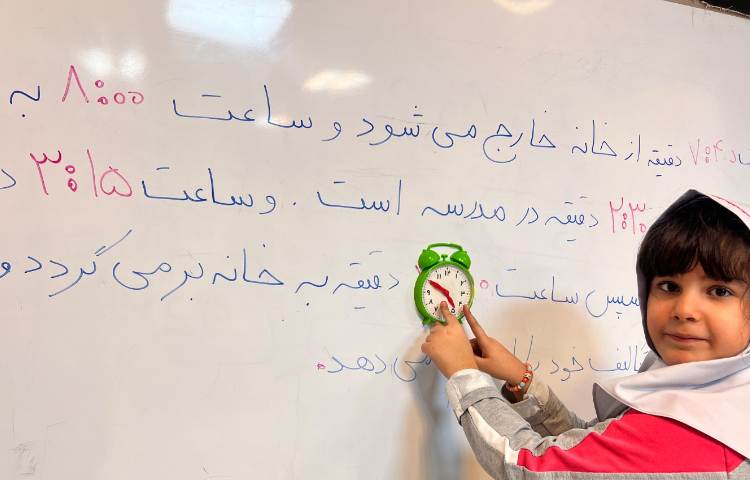 ۷:۴۰ دقیقه از خانه خارج می شود و ساعت ۸:۰۰ به
۲:۳۰ دقیقه در مدرسه است . و ساعت ۳:۱۵
سپس ساعت دقیقه به خانه بر می گردد و
تکالیف خود را می دهد.